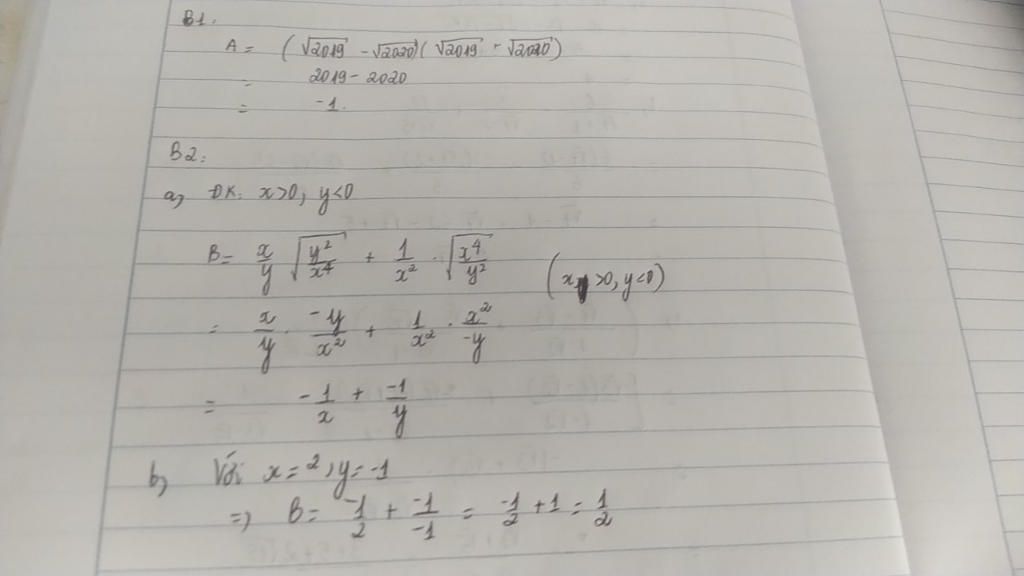 B1:
A = (√2019 - √2020)(√2019 + √2020)
= 2019 - 2020
= -1.
B2:
a, ĐK: x>0, y<0
B = x/y √(y²/x⁴) + 1/x² · √(x⁴/y²) (x >0, y<0)
= x/y · -y/x² + 1/x² · x²/-y
= -1/x + -1/y
b, Với x = 2, y = -1
=> B = -1/2 + -1/-1 = -1/2 + 1 = 1/2